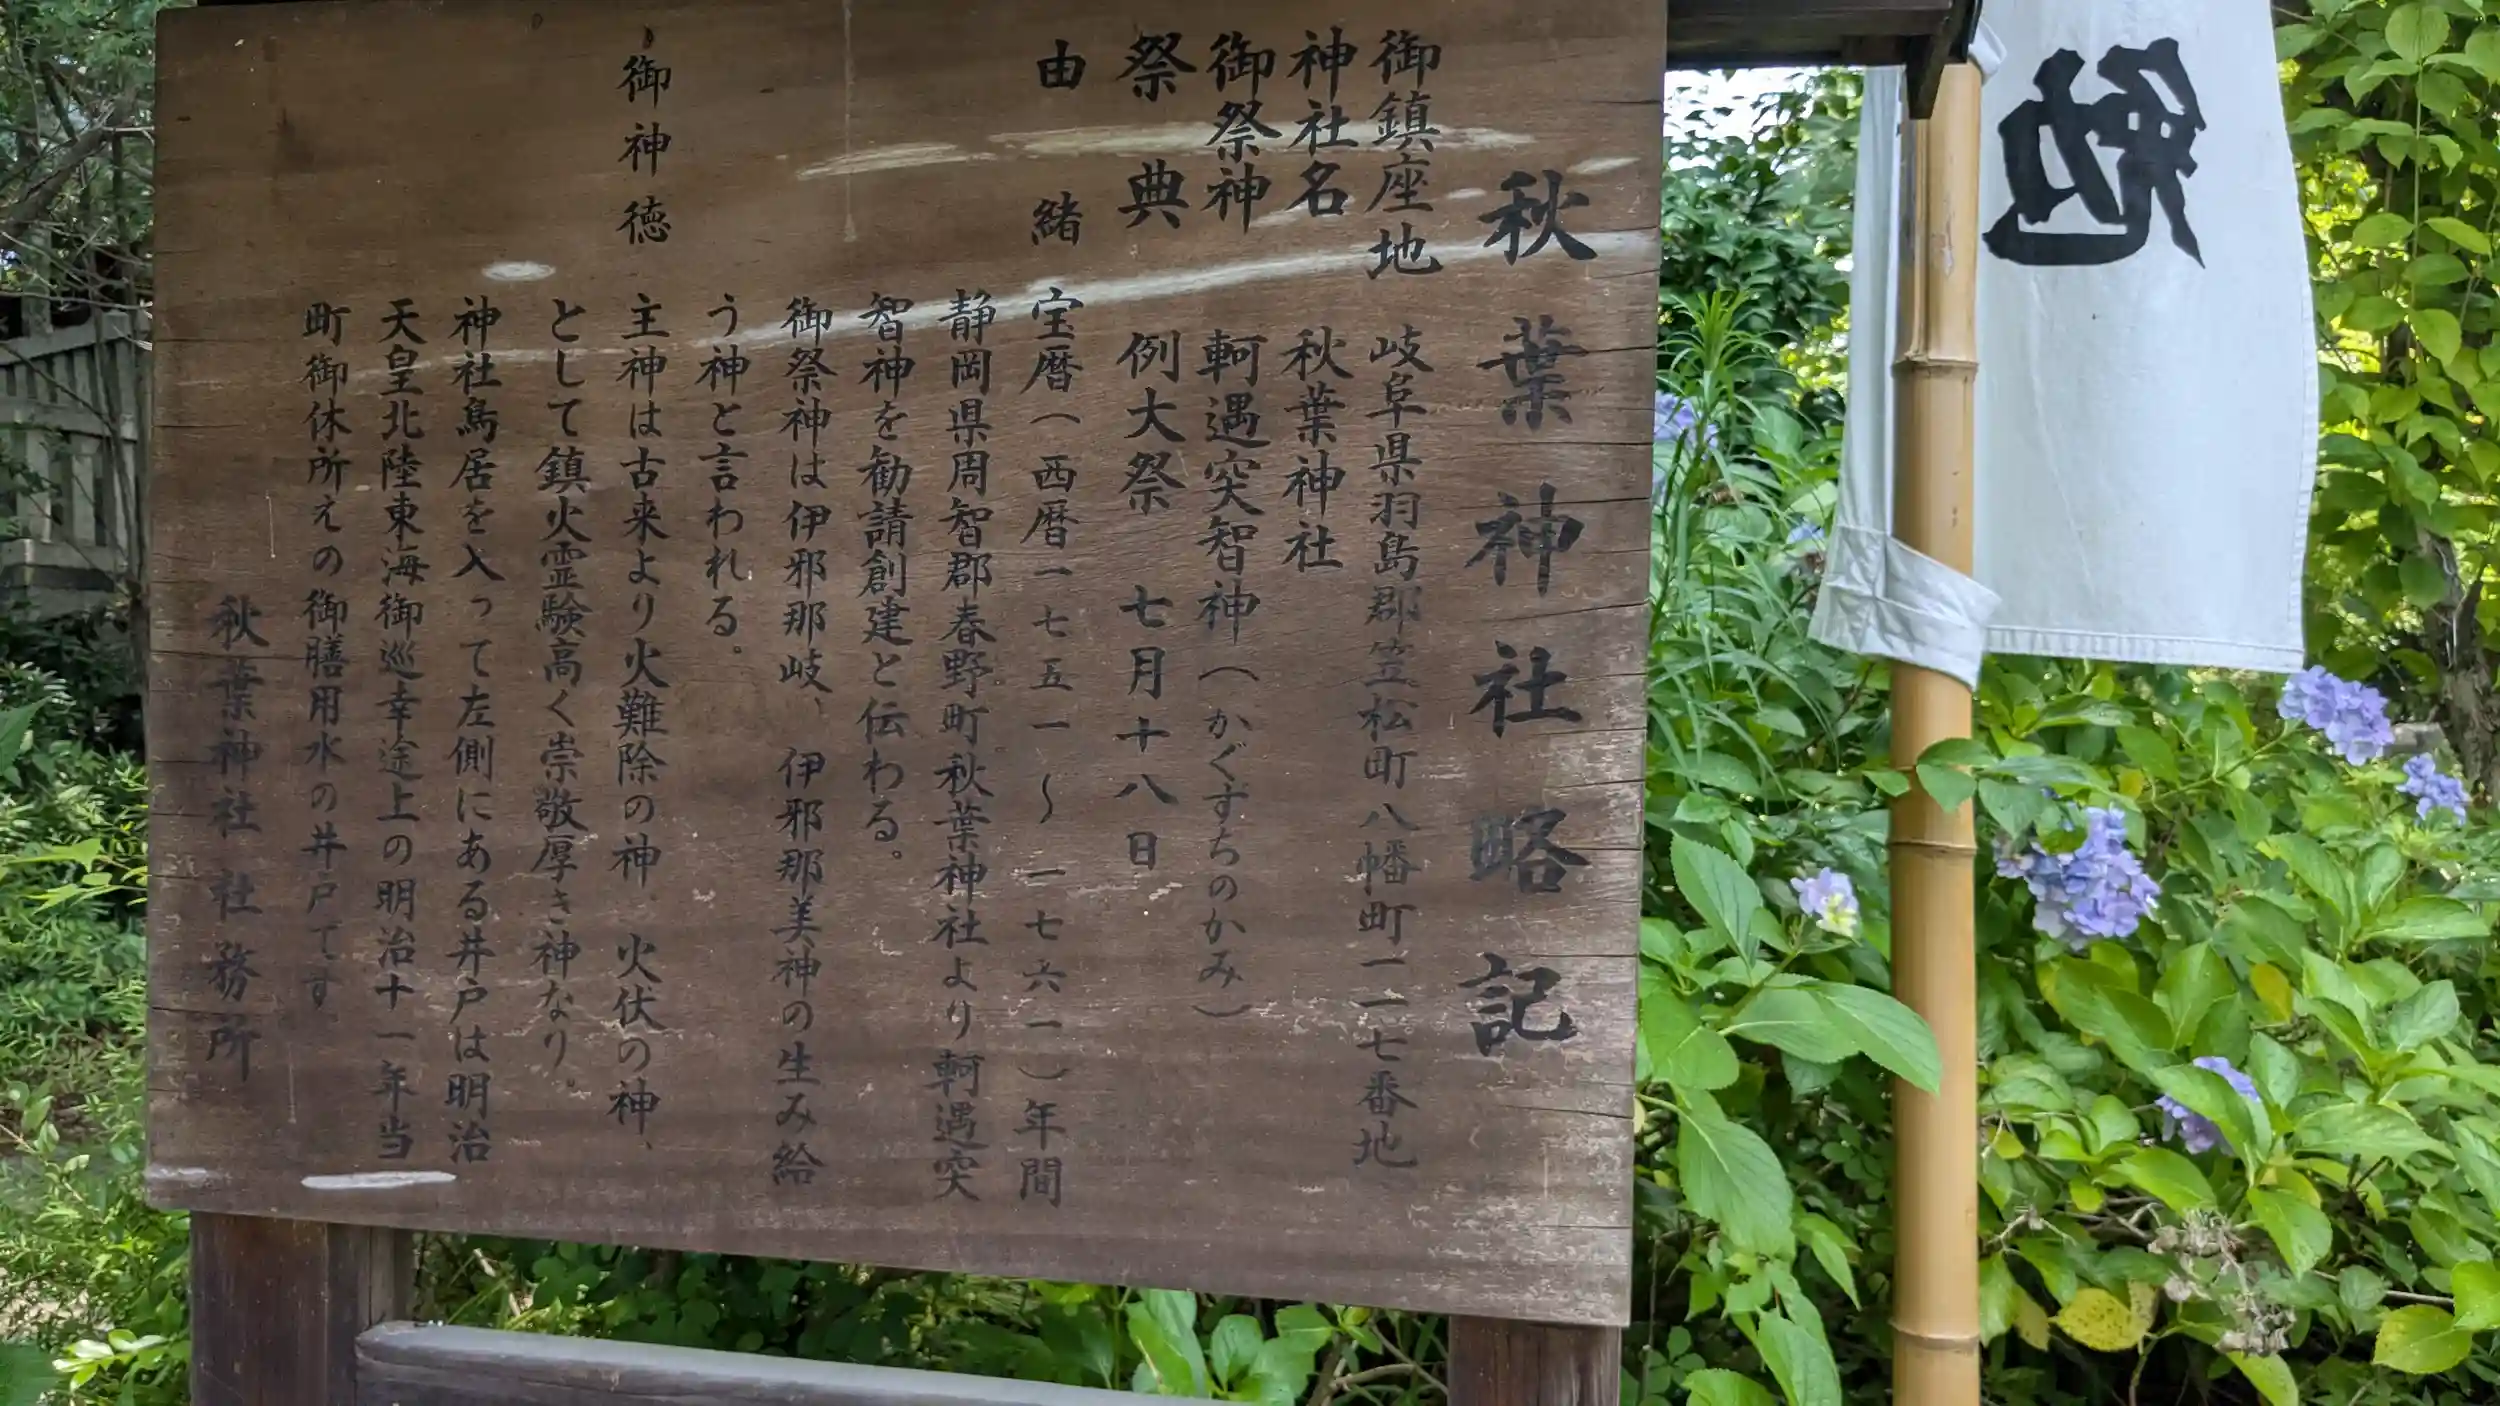 秋葉神社略記
御鎮座地　岐阜県羽島郡笠松町八幡町一一七番地
神社名　秋葉神社
御祭神　軻遇突智神（かぐずちのかみ）
祭典　例大祭　七月十八日
由緒　宝暦（西暦一七五一〜一七六一）年間
静岡県周智郡春野町秋葉神社より軻遇突
智神を勧請創建と伝わる。
御祭神は伊邪那岐、伊邪那美神の生み給
う神と言われる。
御神徳　主神は古来より火難除の神　火伏の神、
として鎮火霊験高く崇敬厚き神なり。
神社鳥居を入って左側にある井戸は明治
天皇北陸東海御巡幸途上の明治十一年当
町御休所えの御膳用水の井戸です。
秋葉神社社務所